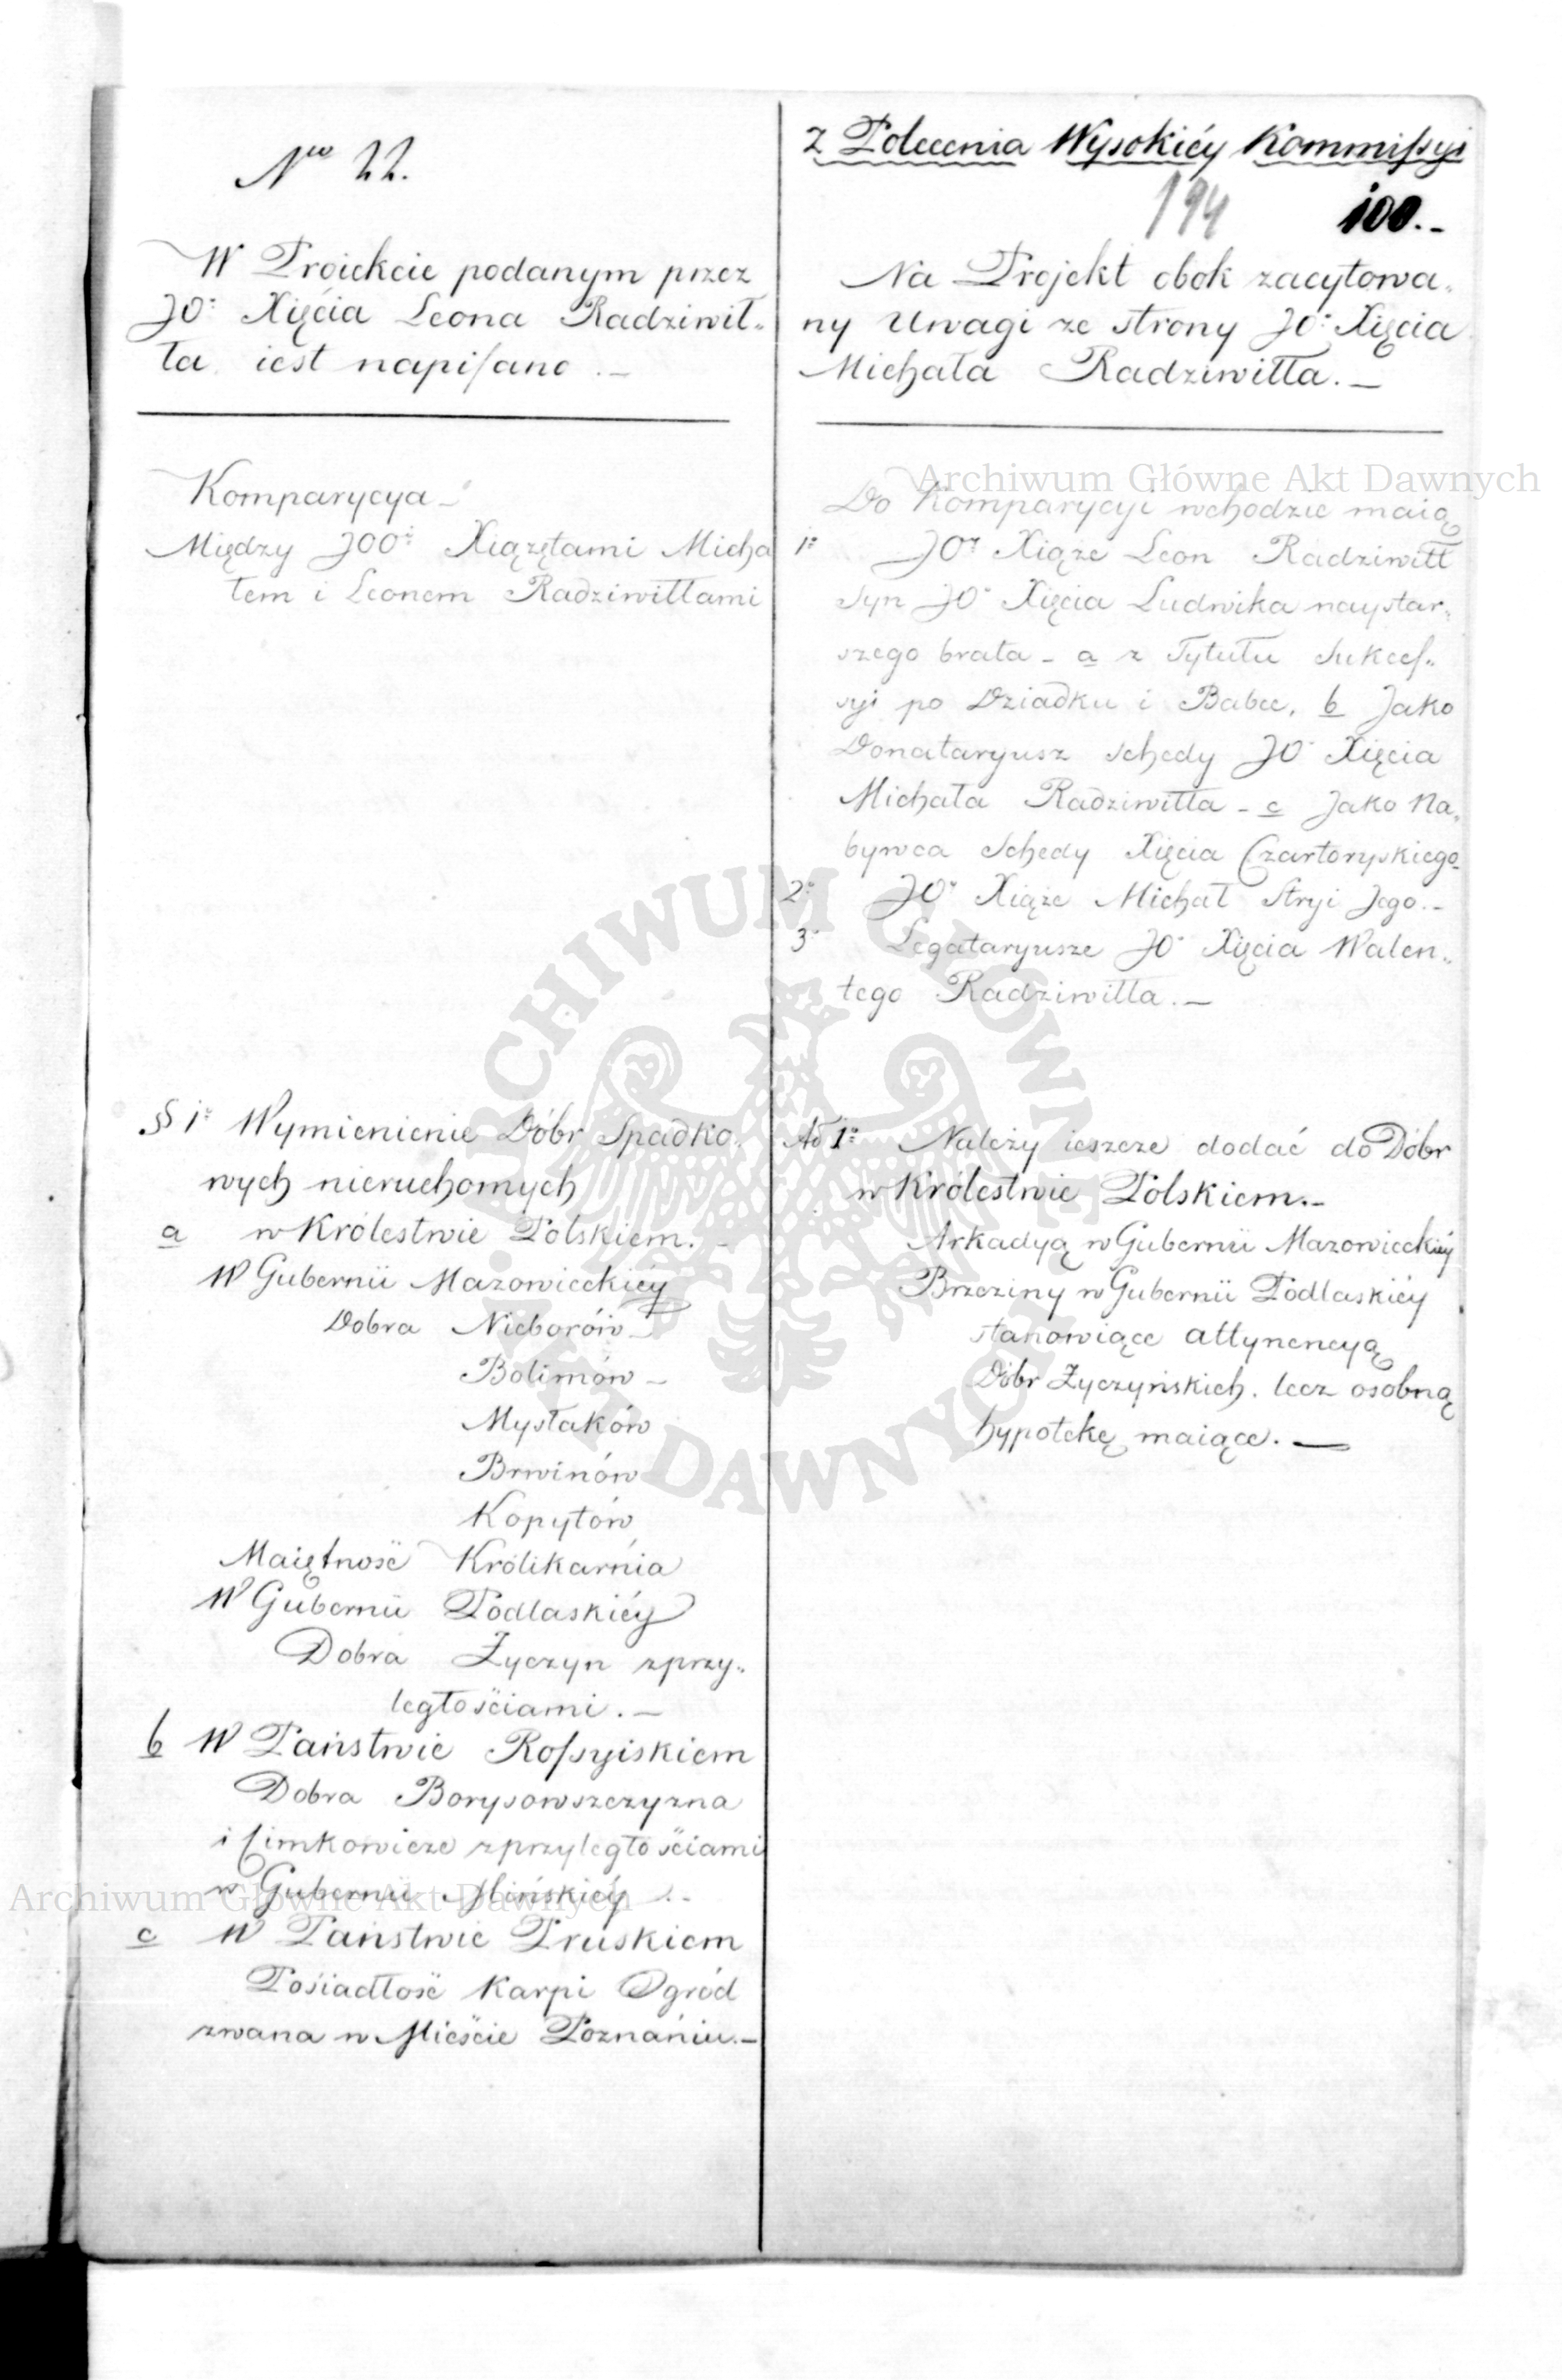 Nro 22.
W Proiekcie podanym przez
JO: Xięcia Leona Radziwił„
ła iest napisano. —
Komparycya —
Między JOO: Xiążętami Micha
łem i Leonem Radziwiłłami
§ 1: Wymienienie Dóbr Spadko„
wych nieruchomych
a w Królestwie Polskiem. —
W Gubernii Mazowieckiéy
Dobra Nieborów —
Bolimów —
Mysłaków
Brwinów
Kopytów
Maiętność Królikarnia
W Gubernii Podlaskiéy
Dobra Życzyn zprzy„
ległościami. —
b W Państwie Rossyiskiem
Dobra Borysowszczyzna
i Cimkowicze zprzyległościami
w Gubernii Mińskiéy . -
c W Państwie Pruskiem
Posiadłość Karpi Ogród
zwana w Mieście Poznaniu. —
z Polecenia Wysokiéy Kommissyi
194 100. -
Na Projekt obok zacytowa„
ny Uwagi ze strony JO: Xięcia
Michała Radziwiłła. —
Do Komparycyi wchodzić maią
1: JOz Xiąże Leon Radziwiłł
Syn JO: Xięcia Ludwika naystar„
szego brata - a z Tytułu Sukces„
syi po Dziadku i Babce, b Jako
Donataryusz schedy JO: Xięcia
Michała Radziwiłła - c Jako Na„
bywca Schedy Xięcia Czartoryskiego
2: JO: Xiąże Michał Stryi Jego. -
3: Legataryusze JO: Xięcia Walen„
tego Radziwiłła. —
Ad 1: Należy ieszcze dodać do Dóbr
w Królestwie Polskiem. -
Arkadyą w Gubernii Mazowieckiéy
Brzeziny w Gubernii Podlaskiéy
stanowiące attynencyą
Dóbr Życzyńskich. lecz osobną
hypotekę maiące. —
Archiwum Główne Akt Dawnych
ARCHIWUM GŁÓWNE AKT DAWNYCH
Archiwum Główne Akt Dawnych